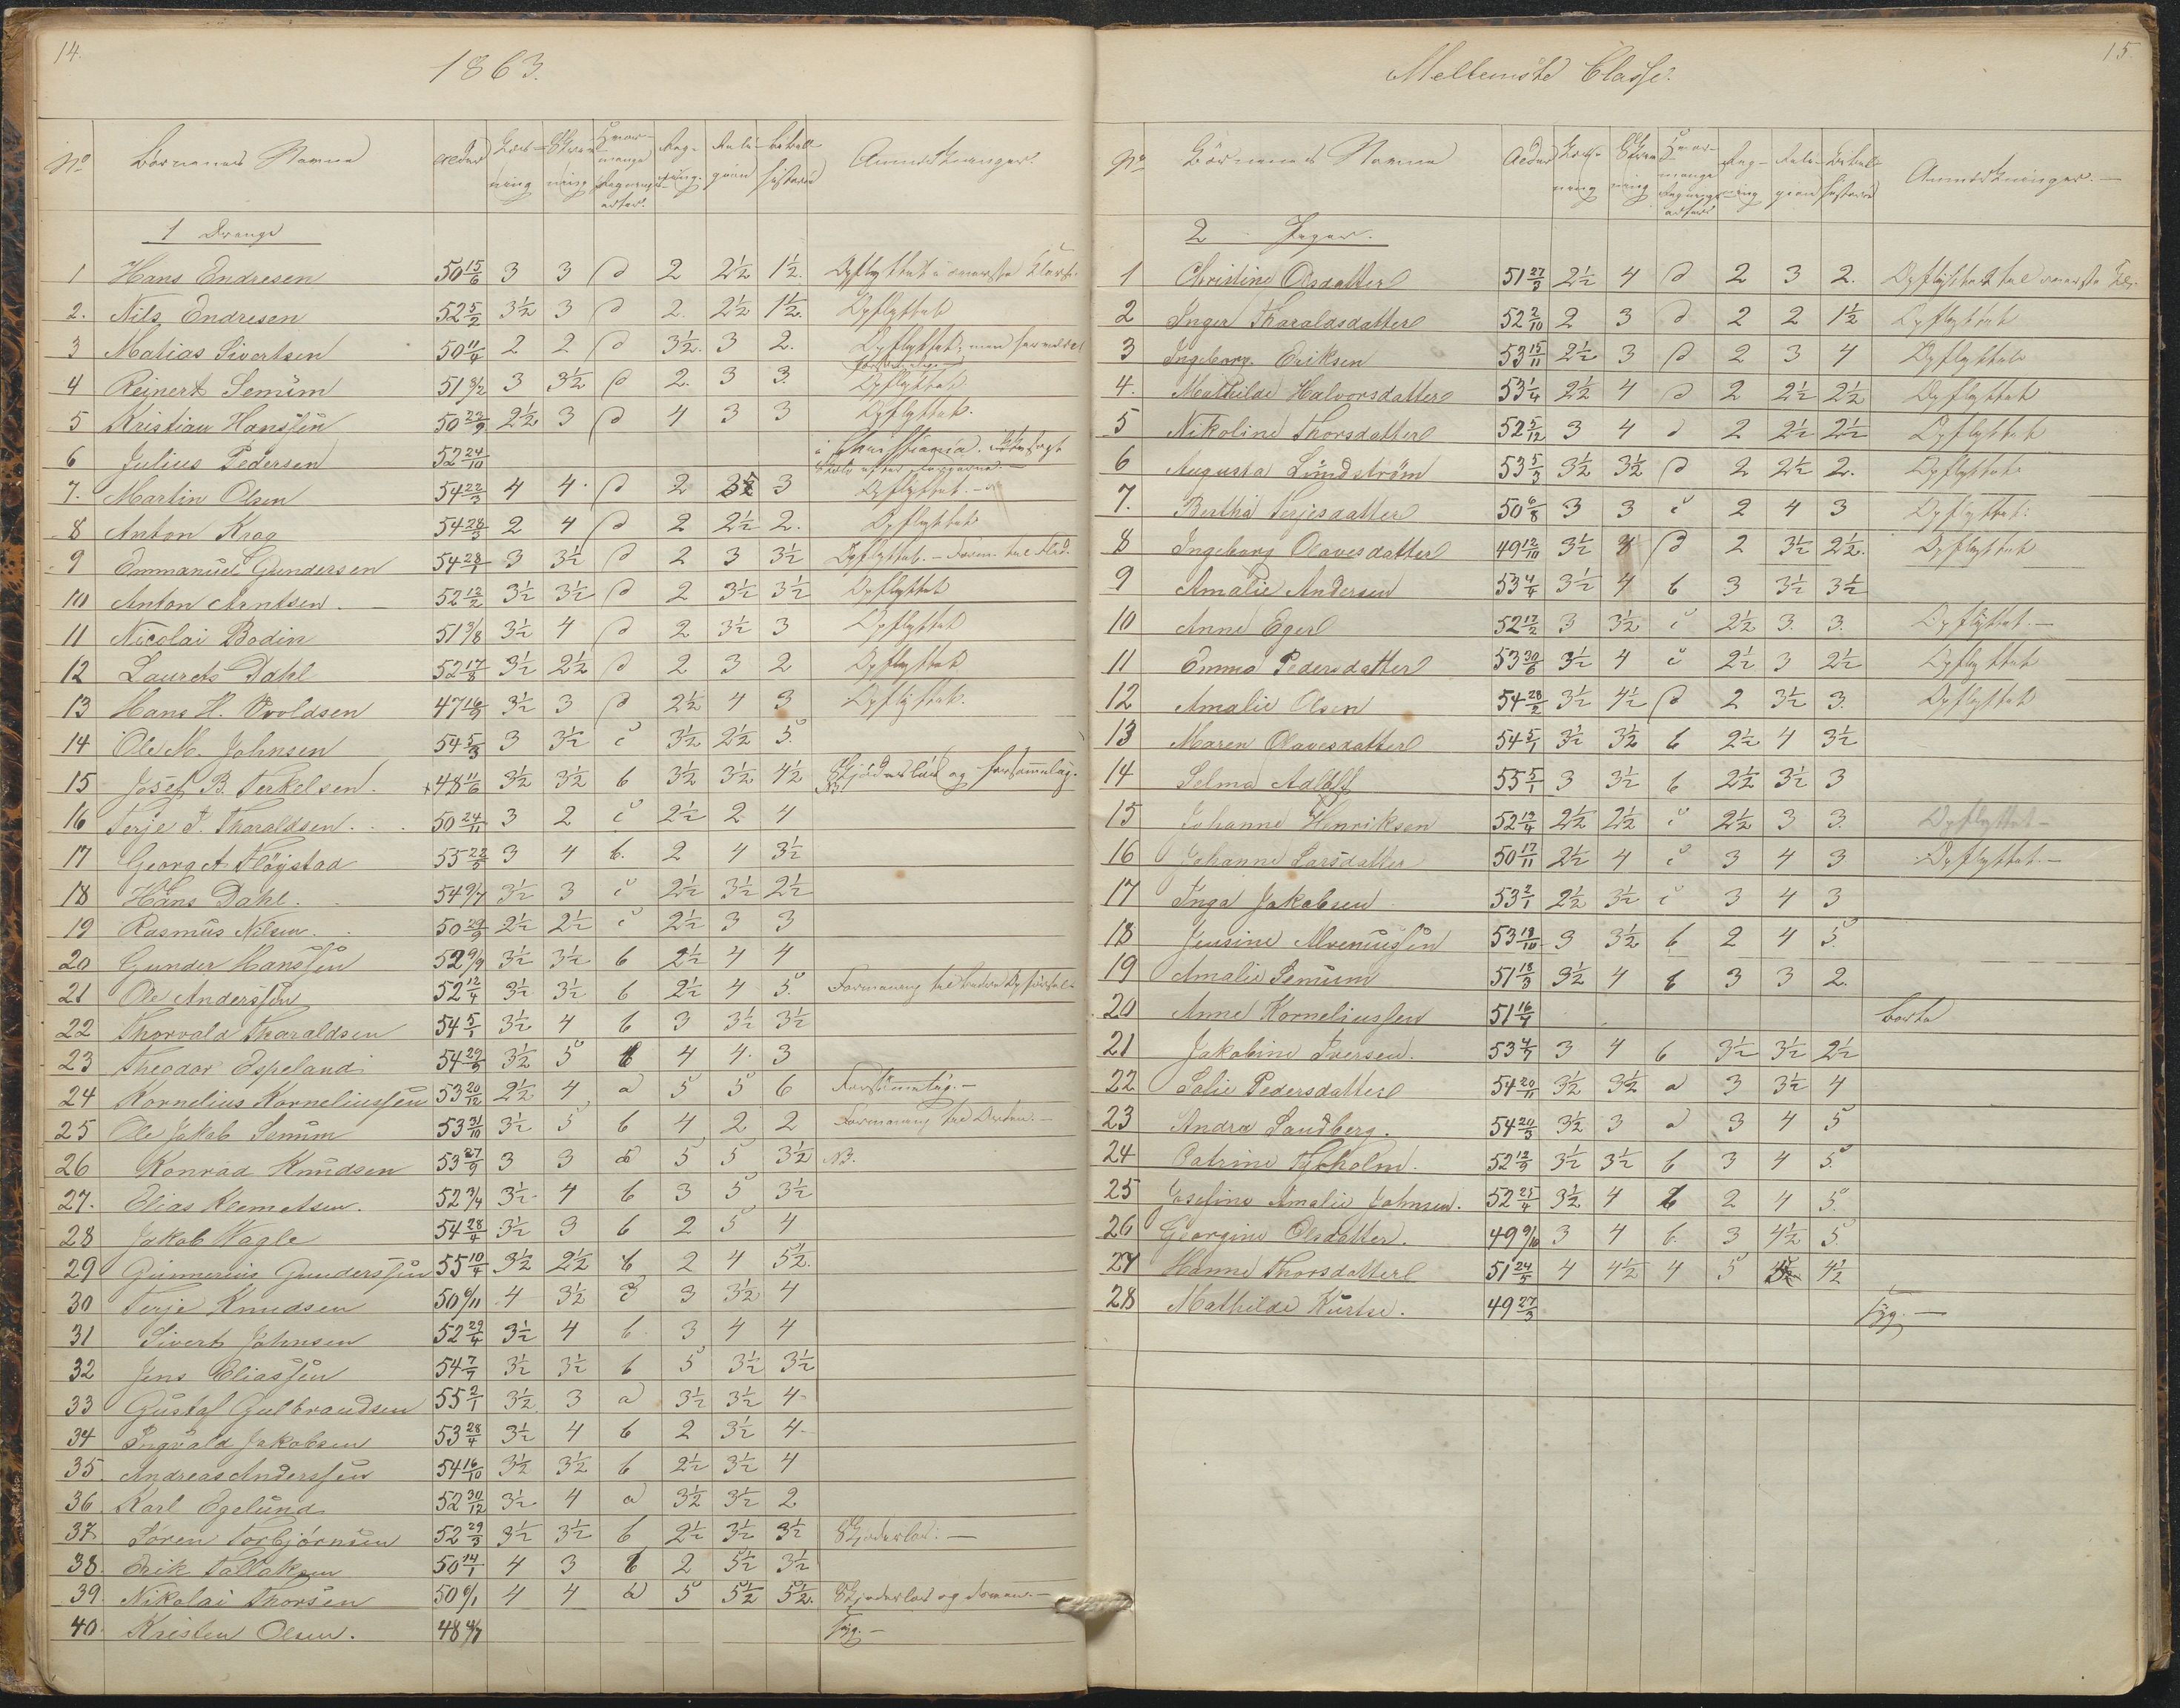 14.
1863.
No Börnenes Navne Alder Læsning Skrivning Hvormange Regningsarter Regning Religion Bibelhistorie Anmærkninger.
1 Drenge
1 Hans Endresen 50 15/6 3 3 d 2 2½ 1½. Opflyttet i øverste Klasse.
2. Nils Endresen 52 5/2 3½ 3 d 2. 2½ 1½. Opflyttet
3 Matias Sivertsen 50 11/4 2 2 d 3½. 3 2. Opflyttet; men
4 Reinert Semüm 51 3/2 3 3½ d 2. 3 3. Opflyttet
5 Kristian Hanssen 50 23/9 2½ 3 d 4 3 3 Opflyttet.
6 Julius Pedersen 52 24/10 i Christiania.
7. Martin Olsen 54 22/3 4 4. d 2 3½ 3 Opflyttet. -
8 Anton Krog 54 28/3 2 4 d 2 2½ 2. Opflyttet
9 Emmanuel Gundersen 54 28/1 3 3½ d 2 3 3½ Opflyttet. - Form. til Flid.
10 Anton Arntsen. 52 12/2 3½ 3½ d 2 3½ 3½ Opflyttet
11 Nicolai Bodin 51 3/8 3½ 4 d 2 3½ 3 Opflyttet
12 Laurets Dahl 52 17/8 3½ 2½ d 2 3 2 Opflyttet
13 Hans H. Ovoldsen 47 16/9 3½ 3 d 2½ 4 3 Opflyttet.
14 Ole M. Johnsen 54 5/3 3 3½ c 3½ 2½ 5.
15 Josef B. Terkelsen. +48 11/6 3½ 3½ b 3½ 3½ 4½ Skjødesløs og forsømmelig.
16 Terje T. Tharaldsen. 50 24/11 3 2 c 2½ 2 4
17 Georg A Fløystad 55 22/5 3 4 b. 2 4 3½
18 Hans Dahl. 54 9/7 3½ 3 c 2½ 3½ 2½
19 Rasmus Nilsen. 50 29/9 2½ 2½ c 2½ 3 3
20 Gunder Hanssen 52 9/9 3½ 3½ b 2½ 4 4
21 Ole Anderssen 52 12/4 3½ 3½ b 2½ 4 5. Formaning til bedre Opførsel
22 Thorvald Tharaldsen 54 5/1 3½ 4 b 3 3½ 3½
23 Theodor Espeland 54 29/9 3½ 5 b 4 4. 3
24 Kornelius Korneliussen 53 20/12 2½ 4 a 5 5 6 Forsømmelig. -
25 Ole Jakob Semüm 53 31/10 3½ 5 b 4 2 2 Formaning til Orden. -
26 Konrad Knudsen 53 27/9 3 3 a 5 5 3½ NB.
27. Elias Klemetsen. 52 3/4 3½ 4 b 3 5 3½
28 Jakob Wagle 54 28/4 3½ 3 b 2 5 4
29 Gunnerius Gunderssen 55 10/4 3½ 2½ b 2 4 5½.
30 Terje Knudsen 50 6/11 4 3½ c 3 3½ 4
31 Sivert Johnsen 52 29/4 3½ 4 b 3 4 4
32 Jens Eliassen 54 7/7 3½ 3½ b 5 3½ 3½
33 Gustaf Gulbrandsen 55 2/1 3½ 3 a 3½ 3½ 4
34 Ingvald Jakobsen 53 28/4 3½ 4 b 2 3½ 4
35. Andreas Anderssen 54 16/10 3½ 3½ b 2½ 3½ 4
36. Karl Egelund 52 30/12 3½ 4 a 3½ 3½ 2
37. Søren Torbjørnsen 52 29/3 3½ 3½ b 2½ 3½ 3½ Skjødesløs. -
38. Erik Tallaksen 50 14/1 4 3 b 2 5½ 3½
39. Nikolai Thorsen 50 6/1 4 4 a 5 5½ 5½. Skjødesløs og doven. -
40. Kristen Olsen. 48 4/7 Syg. -
15.
Mellemste Classe.
No Börnenes Navne Alder Læsning Skrivning Hvormange Regningsarter Regning Religion Bibelhistorie Anmærkninger. -
2 Piger.
1 Christine Olsdatter 51 27/3 2½ 4 d 2 3 2. Opflyttet til øverste Kl.
2 Inger Tharaldsdatter 52 2/10 2 3 d 2 2 1½ Opflyttet
3 Ingeborg Eriksen 53 15/11 2½ 3 d 2 3 4 Opflyttet
4. Mathilde Halvorsdatter 53 1/4 2½ 4 d 2 2½ 2½ Opflyttet
5 Nikoline Thorsdatter 52 5/12 3 4 d 2 2½ 2½ Opflyttet
6 Augusta Lundström 53 5/3 3½ 3½ d 2 2½ 2. Opflyttet
7. Bertha Terjesdatter 50 6/8 3 3 c 2 4 3 Opflyttet.
8 Ingeborg Olavesdatter 49 12/10 3½ 4 d 2 3½ 2½. Opflyttet
9 Amalie Andersen 53 4/4 3½ 4 b 3 3½ 3½
10 Anne Eger 52 17/2 3 3½ c 2½ 3. 3. Opflyttet. -
11 Emma Pedersdatter 53 30/6 3½ 4 c 2½ 3 2½ Opflyttet
12 Amalie Olsen 54 28/2 3½ 4½ d 2 3½ 3. Opflyttet
13 Maren Olavesdatter 54 5/1 3½ 3½ b 2½ 4 3½
14 Selma Adolff 55 5/1 3 3½ b 2½ 3½ 3
15 Johanne Henriksen 52 19/4 2½ 2½ c 2½ 3 3. Opflyttet -
16 Johanne Larsdatter 50 17/11 2½ 4 c 3 4 3 Opflyttet. -
17 Inga Jakobsen 53 2/1 2½ 3½ c 3 4 3
18 Jensine Alveniussen 53 18/10 3 3½ b 2 4 5.
19 Amalie Semüm 51 18/3 3½ 4 b 3 3 2.
20 Anne Korneliussen 51 16/4 borte
21 Jakobine Iversen. 53 4/7 3 4 b 3½ 3½ 2½
22 Salie Pedersdatter 54 20/11 3½ 3½ a 3 3½ 4
23 Andra Sandberg. 54 24/5 3½ 3 a 3 4 5
24 Catrine Tybholm. 52 12/9 3½ 3½ b 3 4 5.
25 Josefine Amalie Johnsen. 52 25/4 3½ 4 b 2 4 5.
26 Georgine Olsdatter. 49 9/10 3 4 b 3 4½ 5
27 Hanne Thorsdatter 51 24/5 4 4½ 4 5 4½
28 Mathilde Kurtse. 49 27/3 Syg. -